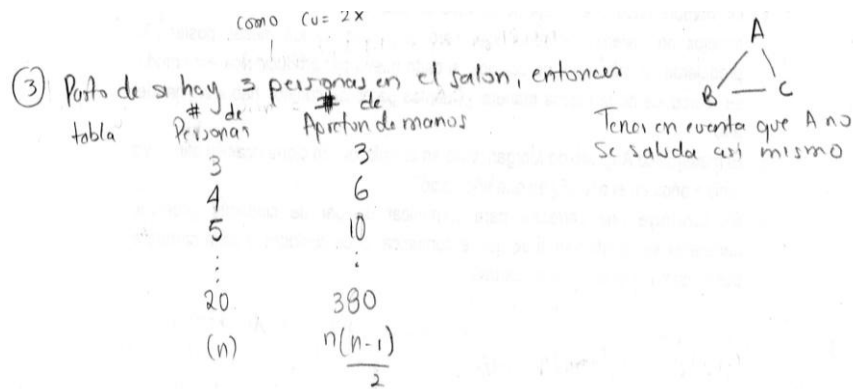 como Cu= 2x
③ Parto de si hay 3 personas en el salon, entonces
tabla
# de Personas # de Apreton de manos
3 3
4 6
5 10
⋮ ⋮
20 380
(n) n(n-1)/2
A
B C
Tener en cuenta que A no
se saluda asi mismo